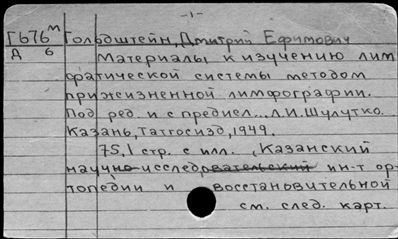 -1-
Г676м Гольдштейн, Дмитрий Ефимович
Д 6 Материалы к изучению лим
фатической системы методом
прижизненной лимфографии.
Под ред. и с предисл... Л.И. Шулутко.
Казань, Татгосизд, 1949.
75,1 стр. с илл. (Казанский
научно-исследовательский ин-т ор-
топедии и восстановительной
см. след. карт.